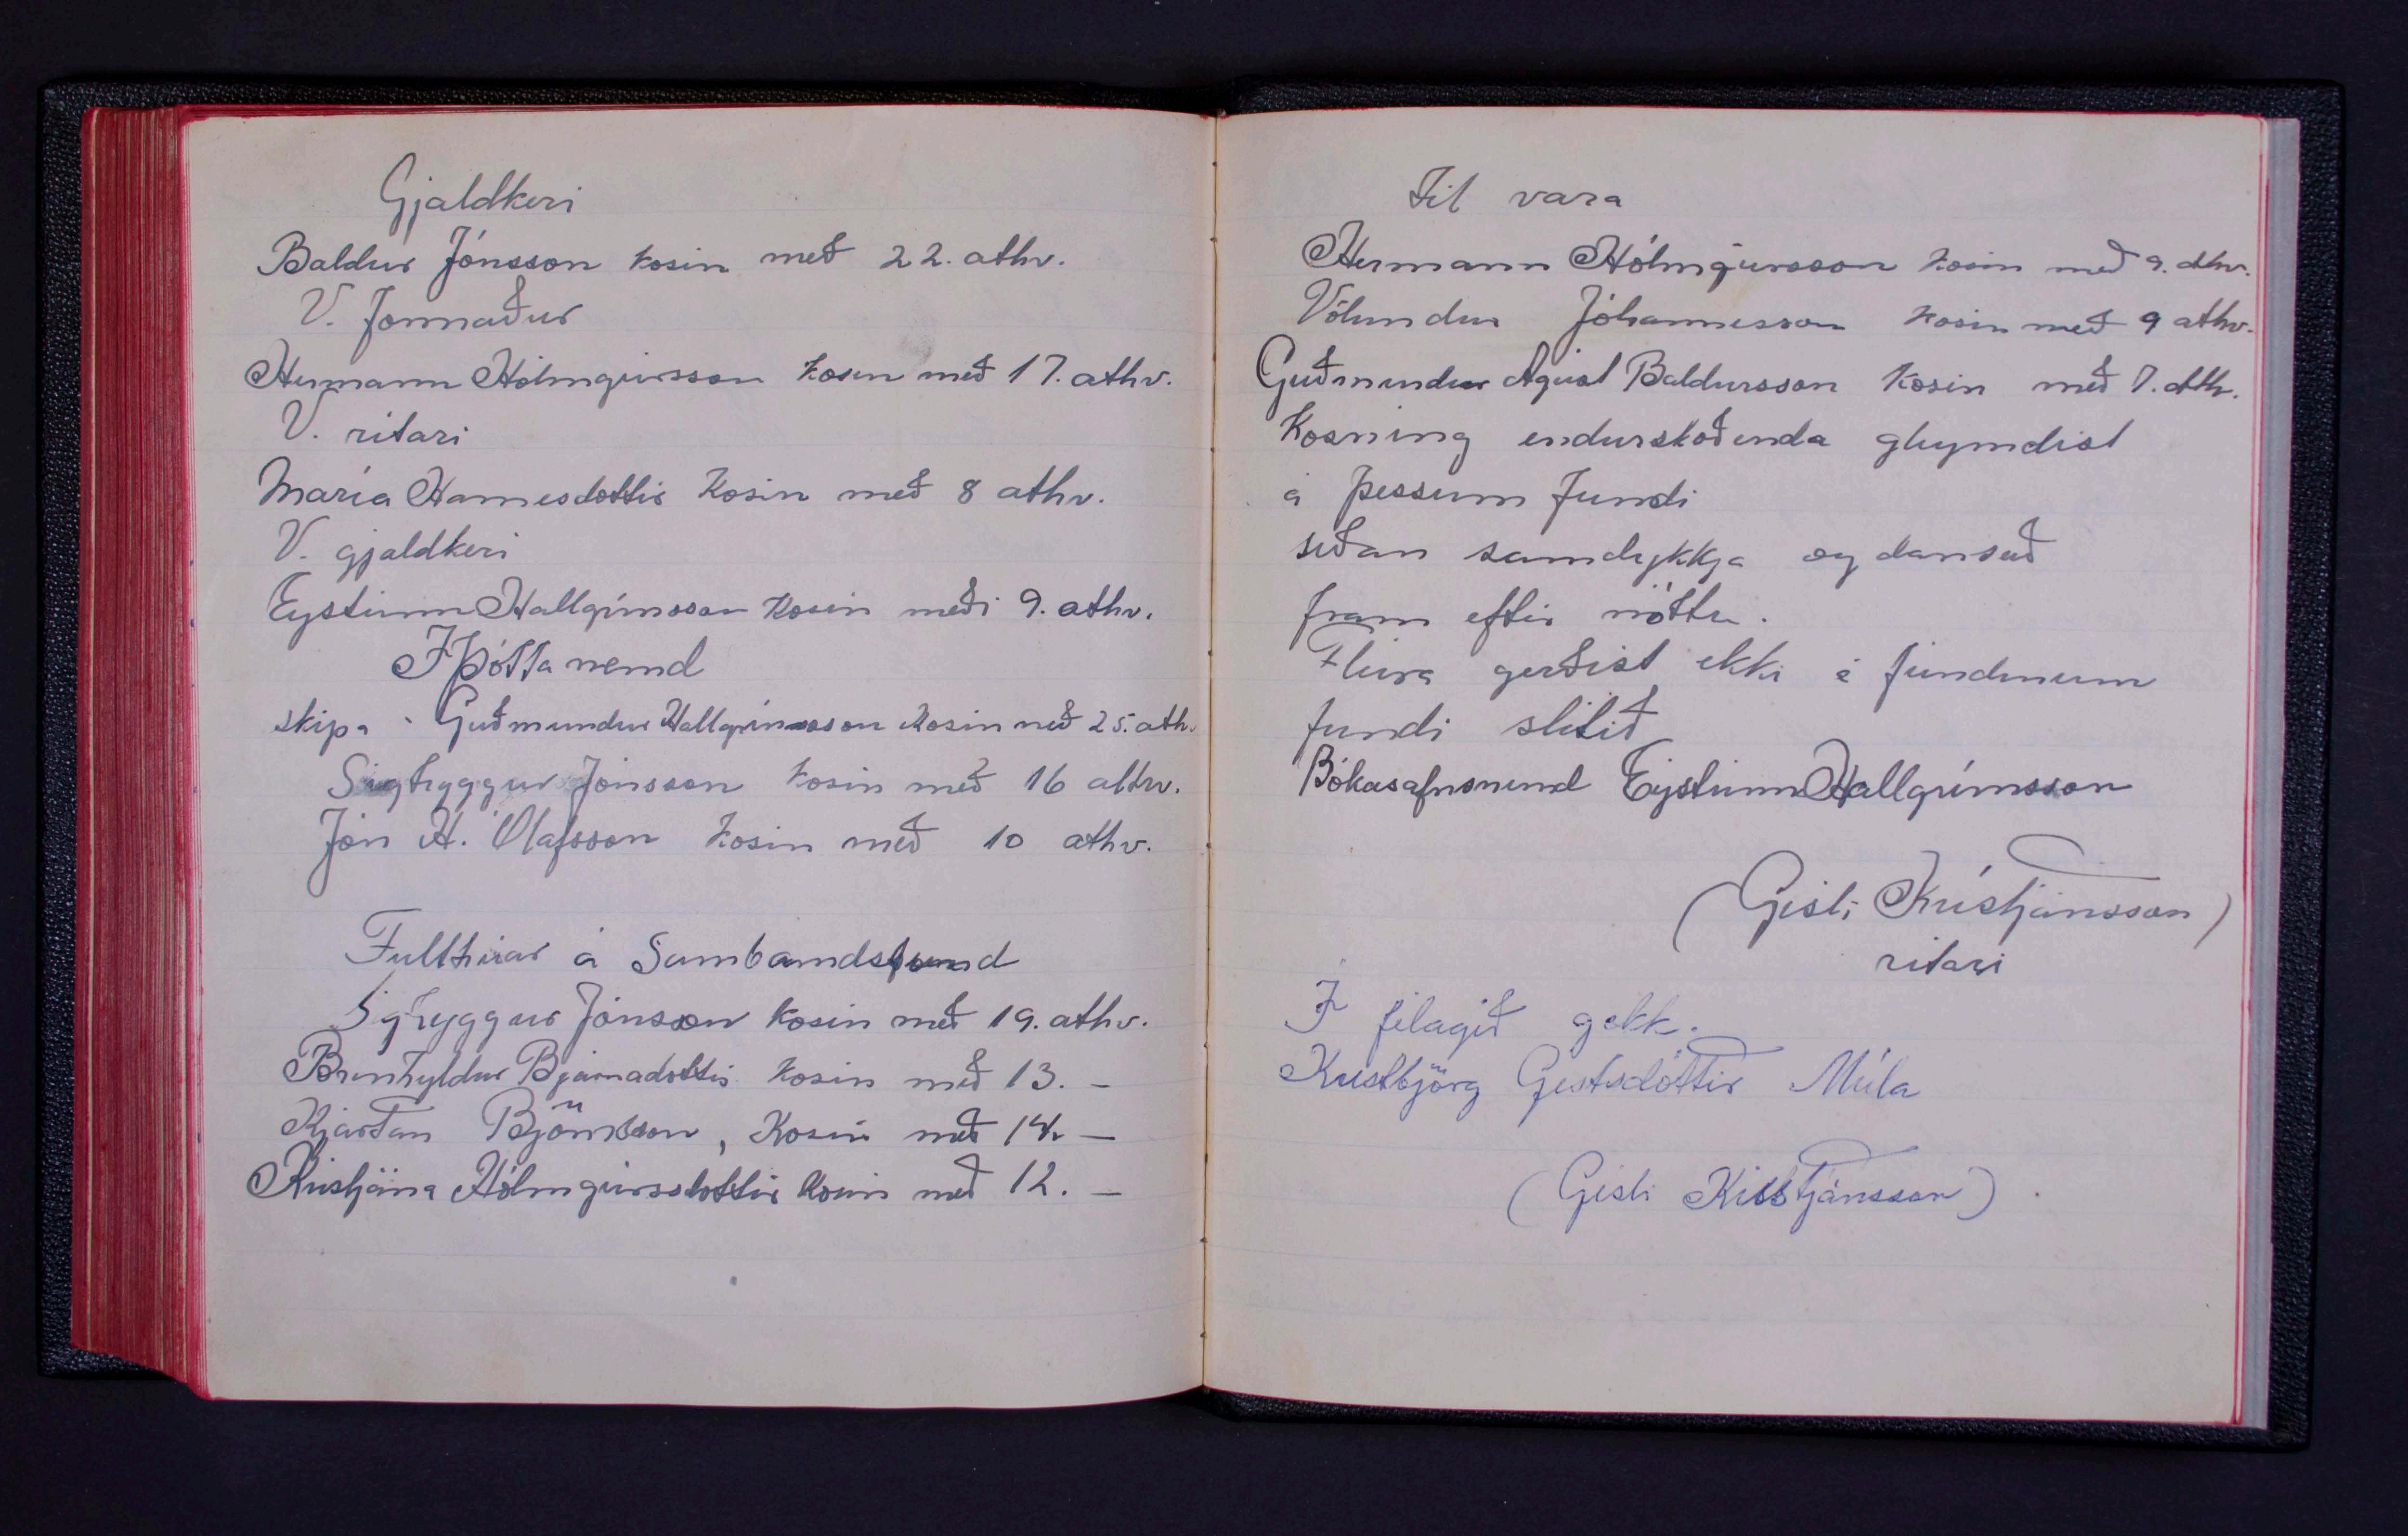 Gjaldkeri
Baldur Jónsson kosin með 22. athv.
V. formaður
Hermann Hólmgeirsson kosin með 17. athv.
V. ritari
María Hannesdottir kosin með 8 athv.
V. gjaldkeri
Eysteinn Hallgrímsson kosin með 9. athv.
Íþótta nemd
skipa Guðmundur Hallgrímsson kosin með 25. athv
Sigtryggur Jónsson kosin með 16 athv.
Jón H. Ólafsson kosin með 10 athv.
Fulltrúar á Sambandsfund
Sigtryggur Jónsson kosin með 19. athv.
Brynhyldur Bjarnadottir kosin með 13. –
Kjartan Björnsson, kosin með 14 –
Kristjána Hólmgeirsdottir kosin með 12. –
Til vara
Hermann Hólmgeirsson kosin með 9. athv.
Völundur Jóhannesson kosin með 9 athv.
Guðmundur Agúst Baldursson kosin með 7. athv.
Kosning endurskoðenda gleymdist
á þessum fundi
síðan samdrykkja og dansað
fram eftir nóttu.
Fleira gerðist ekki á fundinum
fundi slitið
Bókasafnsnemd Eysteinn Hallgrímsson
(Gísli Kristjánsson)
ritari
Í félagið gekk.
Kristbjörg Gestsdóttir Múla
(Gísli Kristjánsson)